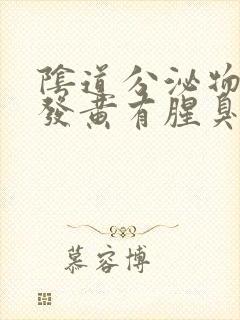 陰道分泌物
發黃有腥臭
慕容博